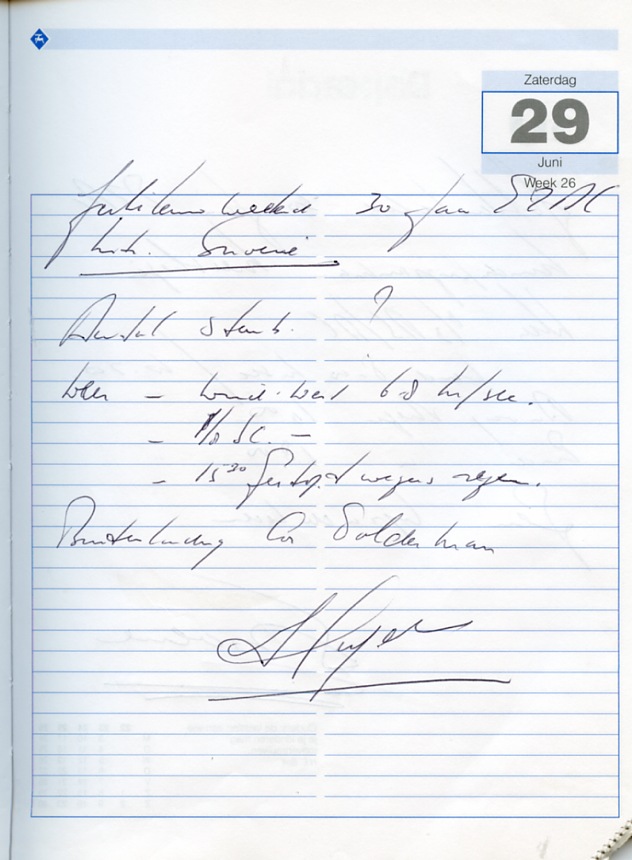 Zaterdag
29
Juni
Week 26
Jubileum weekend 30 Jaar
Aantal stunts. ?
weer - wind: west 6-8 m/sec.
- 1/8 Sc. -
- 15³⁰ gestopt wegens regen.
Buitenlanding Cor Solderman